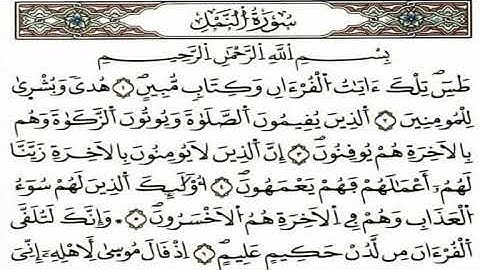 سُورَةُ النَّمْلِ
بِسْمِ اللَّهِ الرَّحْمَٰنِ الرَّحِيمِ
طَسٓ تِلْكَ ءَايَٰتُ الْقُرْءَانِ وَكِتَابٍ مُّبِينٍ ١ هُدىً وَبُشْرَىٰ
لِلْمُومِنِينَ ٢ اَ۬لذِينَ يُقِيمُونَ اَ۬لصَّلَوٰةَ وَيُوتُونَ اَ۬لزَّكَوٰةَ وَهُم
بِالَاخِرَةِ هُمْ يُوقِنُونَ ٣ إِنَّ اَ۬لذِينَ لَا يُومِنُونَ بِالَاخِرَةِ زَيَّنَّا
لَهُمُۥٓ أَعْمَٰلَهُمْ فَهُمْ يَعْمَهُونَ ٤ أُوْلَٰٓئِكَ اَ۬لذِينَ لَهُمْ سُوٓءُ
اُ۬لْعَذَابِ وَهُمْ فِے اِ۬لَاخِرَةِ هُمُ اُ۬لَاخْسَرُونَ ٥ وَإِنَّكَ لَتُلَقَّى
اَ۬لْقُرْءَانَ مِن لَّدُنْ حَكِيمٍ عَلِيمٍ ٦ اِذْ قَالَ مُوسَىٰ لِأَهْلِهِۦٓ إِنِّيَ